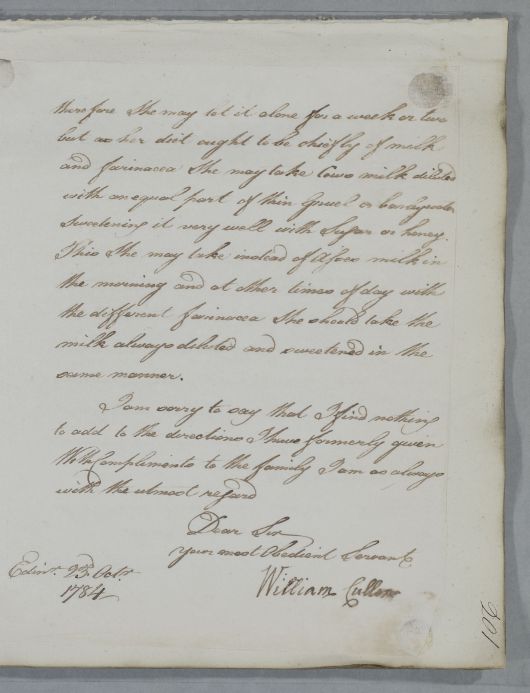 therefore She may let it alone for a week or two
but as her diet ought to be chiefly of milk
and farinacea She may take Cows milk diluted
with an equal part of thin Gruel or barleywater
sweetening it very well with Sugar or honey.
This She may take instead of Asses milk in
the morning and at other times of day with
the different farinacea She should take the
milk always diluted and sweetened in the
same manner.
I am sorry to say that I find nothing
to add to the directions I have formerly given
With Complements to the family I am as always
with the utmost regard
Dear Sir
your most Obedient Servant
Edinr. 23d. Octr.
1784
William Cullen
106